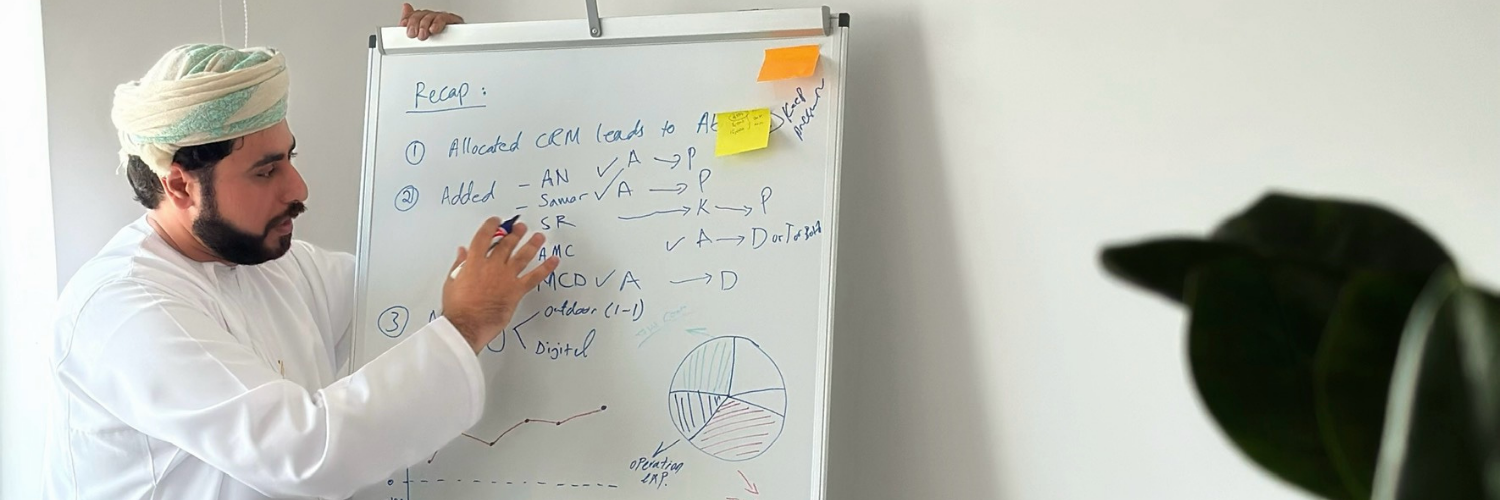 Recap :
① Allocated CRM leads to
Keep
② Added - AN ✓ A → P
- Samar ✓ A → P
SR → K → P
AMC ✓ A → D or T or Both
MCD ✓ A → D
③
Outdoor (1-1)
Digital
operation
exp.
0